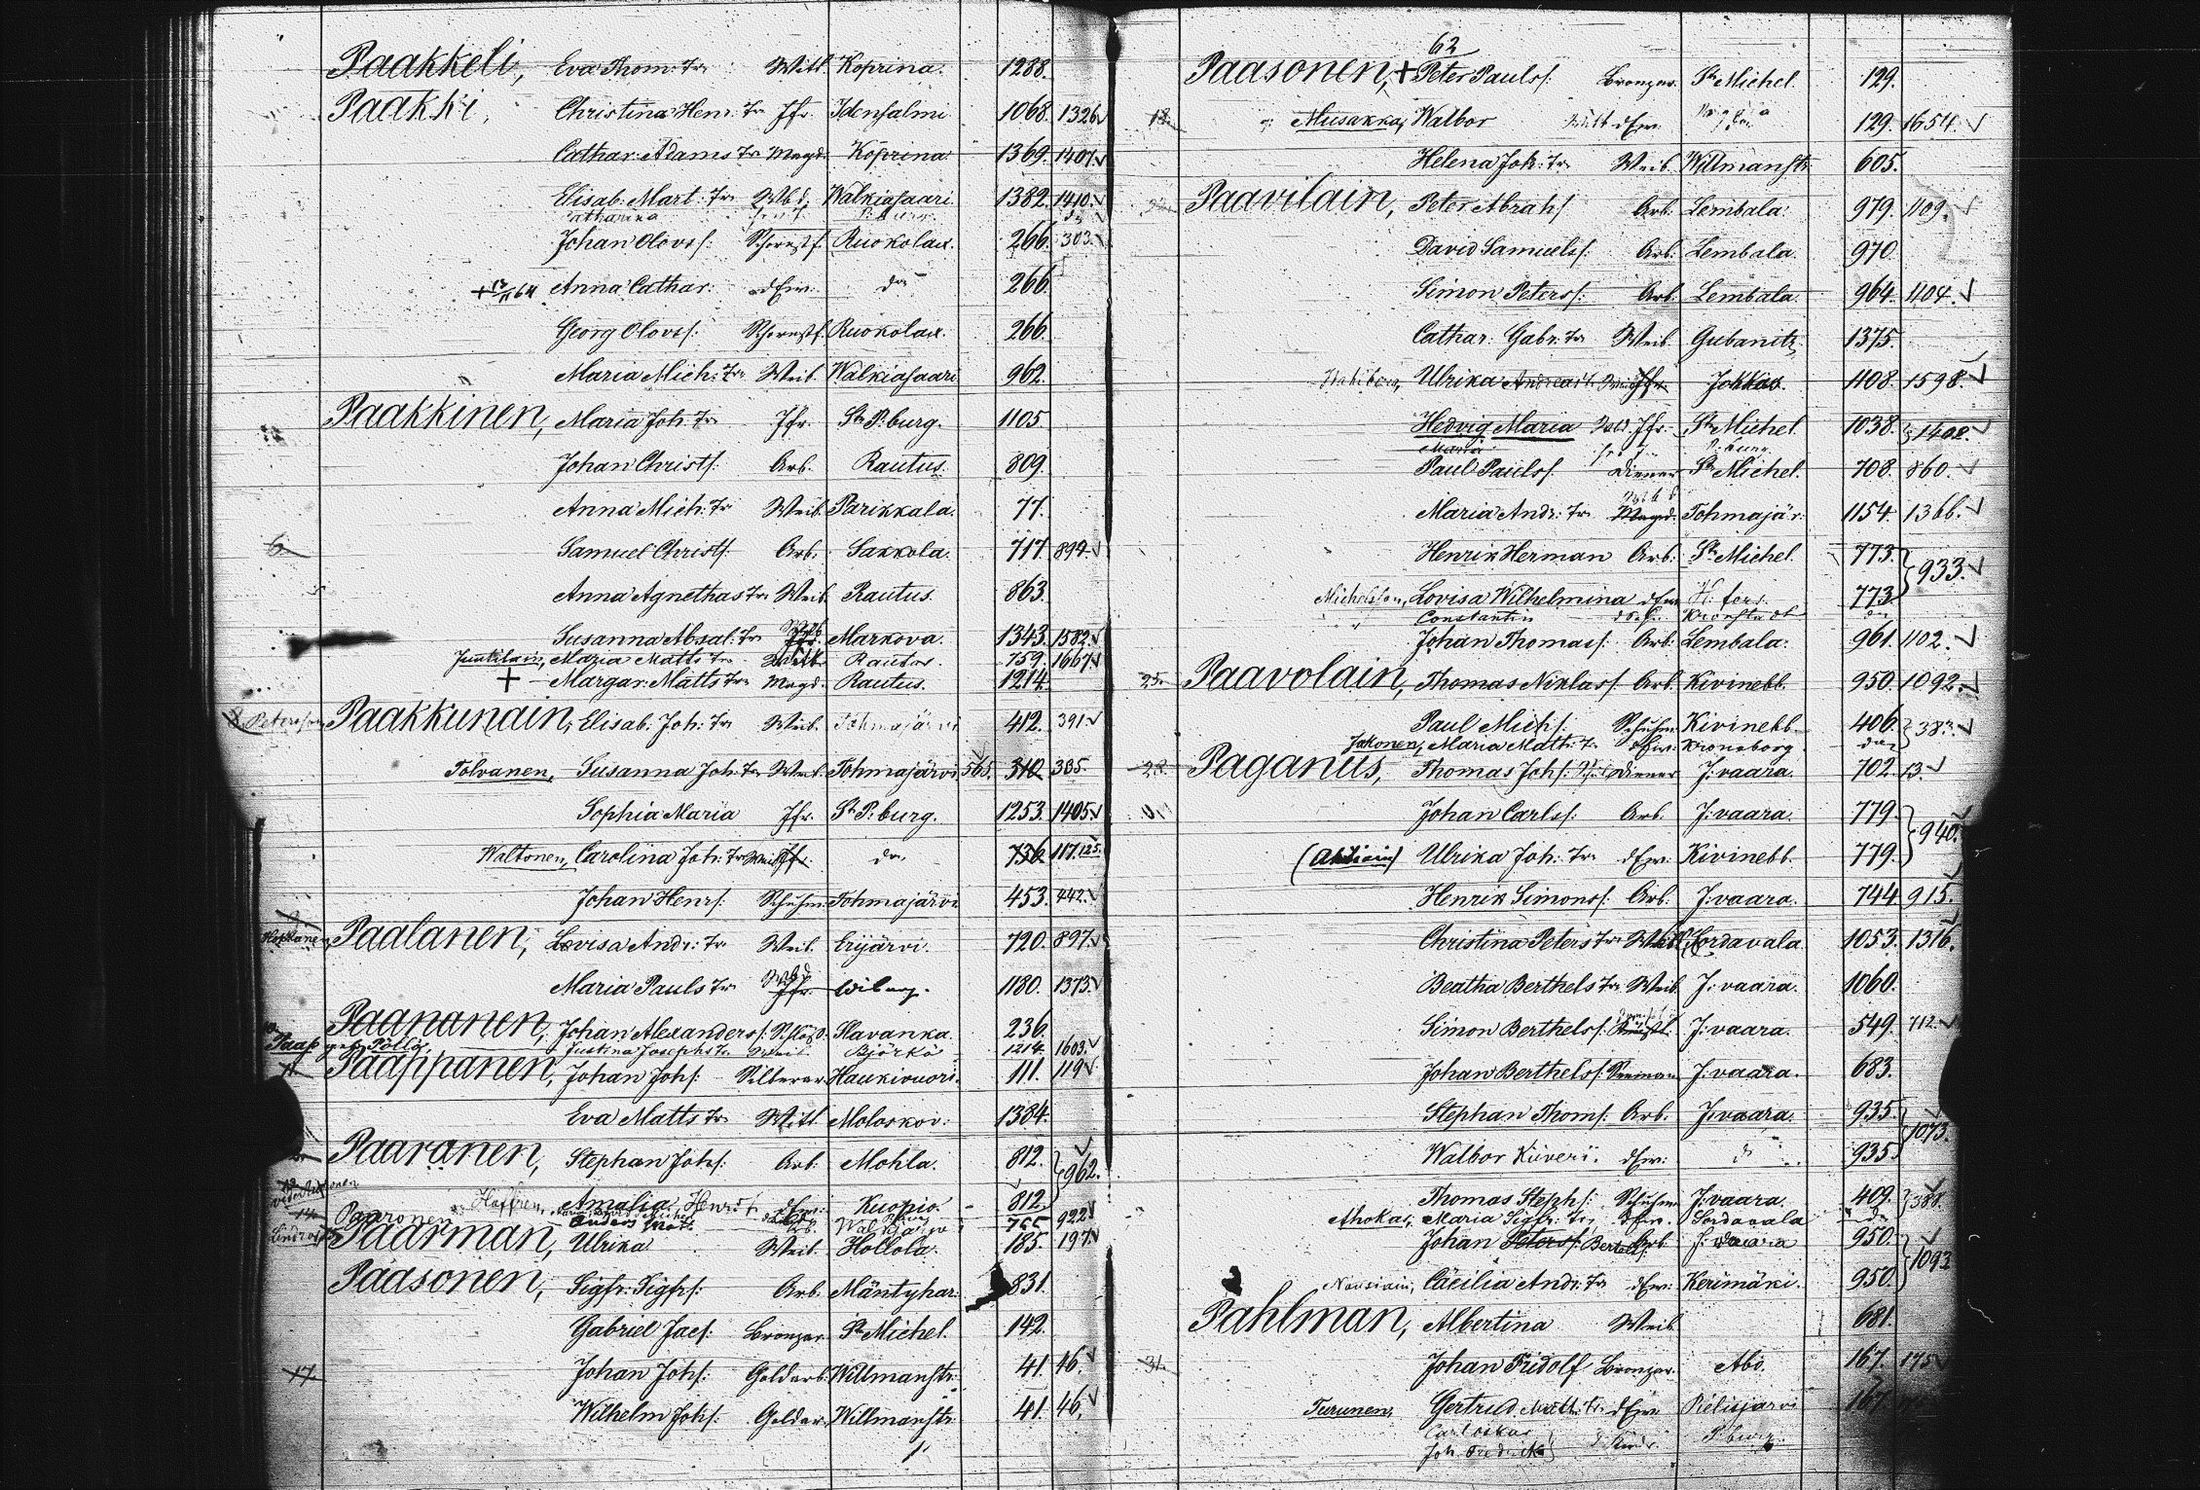 Paakkeli, Eva Thom: Tr Witt. Koprina. 1288.
Paakki, Christina Henr. Tr Jfr. Idensalmi 1068. 1326.
Cathar. Adams Tr Magd. Koprina 1369. 1407.
Elisab. Mart. Tr Wbd. Walkiasaari. 1382. 1410.
Catharina
Johan Olovs: Schornstf. Ruokolax. 266. 303.
+ 13/11 64 Anna Cathar: dEw: do 266.
Georg Olovs: Schornstf. Ruokolax. 266.
Maria Mich: Tr Weib. Walkiasaari 962.
Paakkinen, Maria Joh. Tr Jfr. St P:burg. 1105
Johan Christs: Arb. Rautus. 809.
Anna Mich: Tr Weib. Parikkala. 77.
6 Samuel Christs. Arb. Sakkola. 717 894.
Anna Agnethas Tr Weib. Rautus. 863.
Susanna Absal: Tr Markova. 1343. 1582.
Junkilain, Maria Matts Tr Rautus. 759. 1667.
+ Margar: Matts Tr Magd. Rautus. 1214.
Peterson Paakkunain, Elisab: Joh: Tr Weib. Tohmajärvi 412. 391
Tolvanen, Susanna Joh: Tr Weib. Tohmajärvi 565. 310 385.
Sophia Maria Jfr. St P:burg. 1253. 1405.
Waltonen, Carolina Joh: Tr Weib Jfr. do 736 117. 125.
Johan Henrs: Schuhm. Tohmajärvi 453. 442.
Paalanen, Lovisa Andr: Tr Weib. Erijärvi. 720. 897.
Maria Pauls Tr Wbd Jfr. Wiburg. 1180. 1373.
Paananen, Johan Alexanders: Slavanka. 236.
Paap geb. Pöllä, Justina Josephs Tr Weib. Björkö 1214. 1603.
Paappanen, Johan Johs: Silberar. Haukivuori. 111. 119
Eva Matts Tr Witt. Moloskov: 1384.
Paaranen, Stephan Johs: Arb. Mohla. 812. 962.
Amalia Henrst. dEw: Kuopio. 812.
Paaronen Anders Matt. 755 922
Paarman, Ulrika Weib. Hollola. 185. 197.
Paasonen, Sigfr: Sigfrs: Arb. Mäntyhar: 831.
Gabriel Jacs: Bronzar. St Michel. 142.
17 Johan Johs: Goldarb. Willmanstr. 41. 46.
Wilhelm Johs: Goldar. Willmanstr. 41. 46.
62
Paasonen, + Peter Pauls: Bronzar. St Michel. 129.
18. Miisakka, Walbor Witt dEw. 129. 1654.
Helena Joh: Tr Weib. Willmanstr. 605.
Paavilain, Peter Abrahs Arb. Lembala. 979. 1109.
David Samuels: Arb. Lembala. 970.
Simon Peters: Arb. Lembala. 964. 1104.
Cathar: Gabr: Tr Weib. Gubanitz 1375.
Ulrika Andreas Tr Jfr. Jokkas. 1108. 1598.
Hedvig Maria Jfr. St Michel. 1038. 1408.
Maria P:burg
Paul Pauls: Diener St Michel. 708. 860.
Maria Andr: Tr Magd. Tohmajär: 1154. 1366.
Henrik Herman Arb: St Michel. 773. 933.
Michelsson, Lovisa Wilhelmina dEw H:fors. 773
Constantin do S. Kronstadt do
Johan Thomas: Arb. Lembala. 961. 1102.
25. Paavolain, Thomas Niklass Arb. Kivinebb. 950. 1092.
Paul Michs: Schuhm. Kivinebb. 406. 383.
Jakonen, Maria Math: Tr dEw: Kronoborg. do
28. Paganus, Thomas Johs: Diener J:vaara. 702. 13.
Johan Carls: Arb. J:vaara. 779. 940.
(Ahtiain) Ulrika Joh: Tr dEw: Kivinebb. 779.
Henrik Simons: Arb. J:vaara. 744 915.
Christina Peters Tr Sordavala. 1053. 1316.
Beatha Berthels Tr Weib. J:vaara. 1060.
Simon Berthels: J:vaara. 549. 712.
Johan Berthels: Seeman J:vaara. 683.
Stephan Thoms: Arb: J:vaara. 935 1073.
Walbor Kiiveri. dEw: do 935
Thomas Stephs: Schuhm J:vaara. 409. 381.
Ahokas, Maria Sigfr: Tr dEw. Sordavala do
Johan Peters: Bertels: Arb. J:vaara 950. 1093
Nousiain, Cäcilia Andr: Tr dEw: Kerimäki. 950.
Pahlman, Albertina Weib 681.
31. Johan Fridolf Bronzar. Abo. 167. 175
Turunen, Gertrud Matth: Tr dEw: Pielisjärvi 167.
Carl Oskar
Joh. Fredrick P:burg.